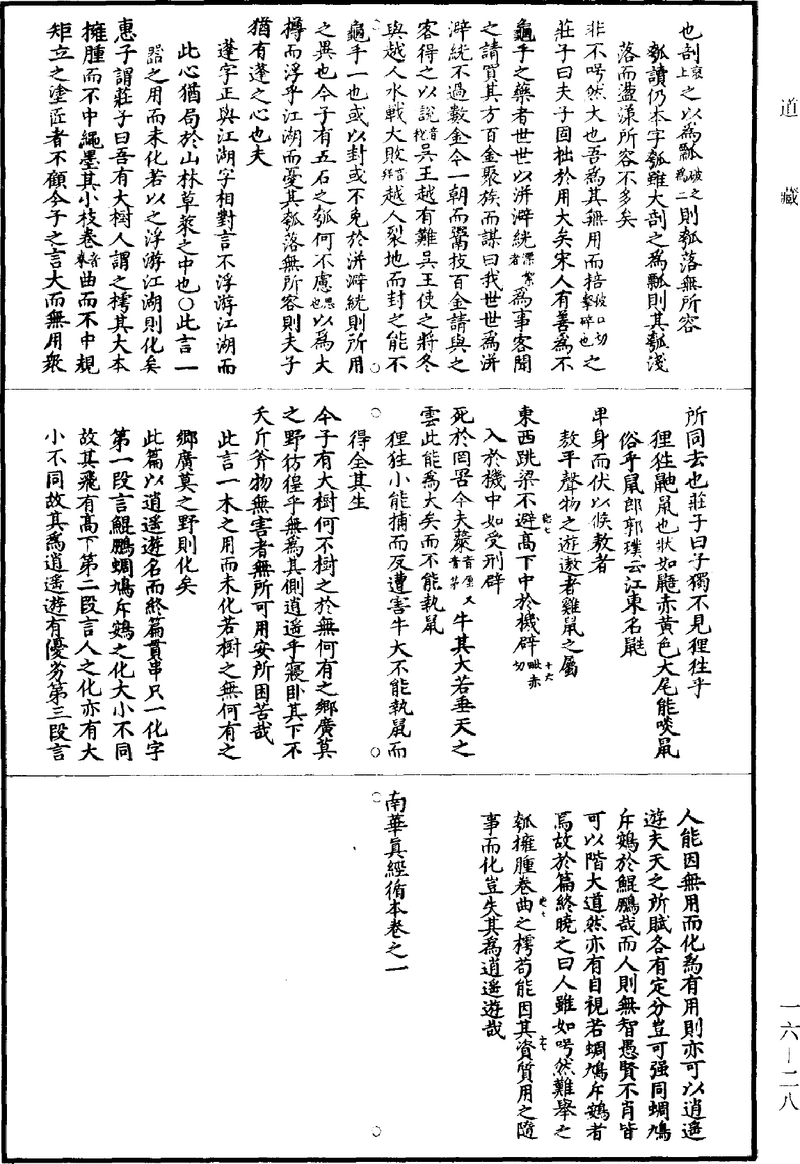 道藏
一六—二八
也剖哀上之以為瓢破之為二則瓠落無所容
瓠讀仍本字瓠雖大剖之為瓢則其瓠淺
落而盪漾所容不多矣
非不呺然大也吾為其無用而掊彼口切擊碎也之
莊子曰夫子固拙於用大矣宋人有善為不
龜手之藥者世世以洴澼絖漂絮者為事客聞
之請買其方百金聚族而謀曰我世世為洴
澼絖不過數金今一朝而鬻技百金請與之
客得之以說音稅吳王越有難吳王使之將冬
與越人水戰大敗音拜越人裂地而封之能不
龜手一也或以封或不免於洴澼絖則所用
之異也今子有五石之瓠何不慮思也以為大
樽而浮乎江湖而憂其瓠落無所容則夫子
猶有蓬之心也夫
蓬字正與江湖字相對言不浮游江湖而
此心猶局於山林草萊之中也○此言一
器之用而未化若以之浮游江湖則化矣
惠子謂莊子曰吾有大樹人謂之樗其大本
擁腫而不中繩墨其小枝卷音拳曲而不中規
矩立之塗匠者不顧今子之言大而無用衆
所同去也莊子曰子獨不見狸狌乎
狸狌鼬鼠也狀如䶉赤黄色大尾能啖鼠
俗乎鼠郎郭璞云江東名鼪
卑身而伏以候敖者
敖平聲物之遊遨者雞鼠之屬
東西跳梁不避高下中於機辟毗亦切
入於機中如受刑辟
死於罔罟今夫斄牛其大若垂天之
雲此能為大矣而不能執鼠
狸狌小能捕而反遭害牛大不能執鼠而
得全其生
今子有大樹何不樹之於無何有之鄉廣莫
之野彷徨乎無為其側逍遥乎寢卧其下不
夭斤斧物無害者無所可用安所困苦哉
此言一木之用而未化若樹之無何有之
鄉廣莫之野則化矣
此篇以逍遥遊名而終篇貫串只一化字
第一段言鯤鵬蜩鳩斥鴳之化大小不同
故其飛有高下第二段言人之化亦有大
小不同故其為逍遥遊有優劣第三段言
人能因無用而化為有用則亦可以逍遥
遊夫天之所賦各有定分豈可强同蜩鳩
斥鴳於鯤鵬哉而人則無智愚賢不肖皆
可以階大道然亦有自視若蜩鳩斥鴳者
焉故於篇終曉之曰人雖如呺然難舉之
瓠擁腫卷曲之樗苟能因其資質用之隨
事而化豈失其為逍遥遊哉
南華真經循本卷之一